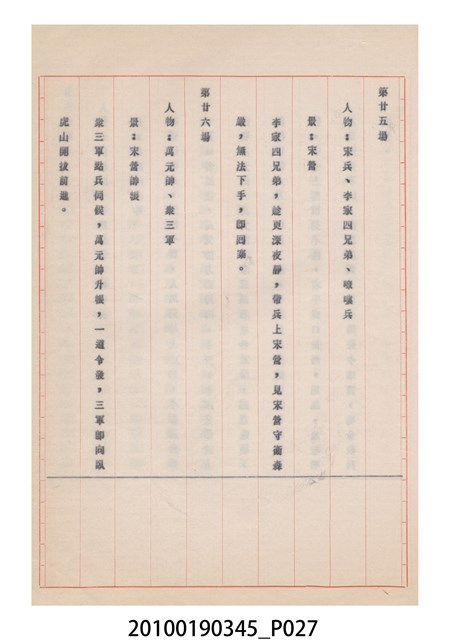 第廿五場
人物：宋兵、李家四兄弟、嘍囉兵
景：宋營
李家四兄弟，趁更深夜靜，帶兵上宋營，見宋營守衛森
嚴，無法下手，即回寨。
第廿六場
人物：萬元帥、眾三軍
景：宋營帥帳
眾三軍點兵伺候，萬元帥升帳，一道令發，三軍即向臥
虎山開拔前進。
20100190345_P027